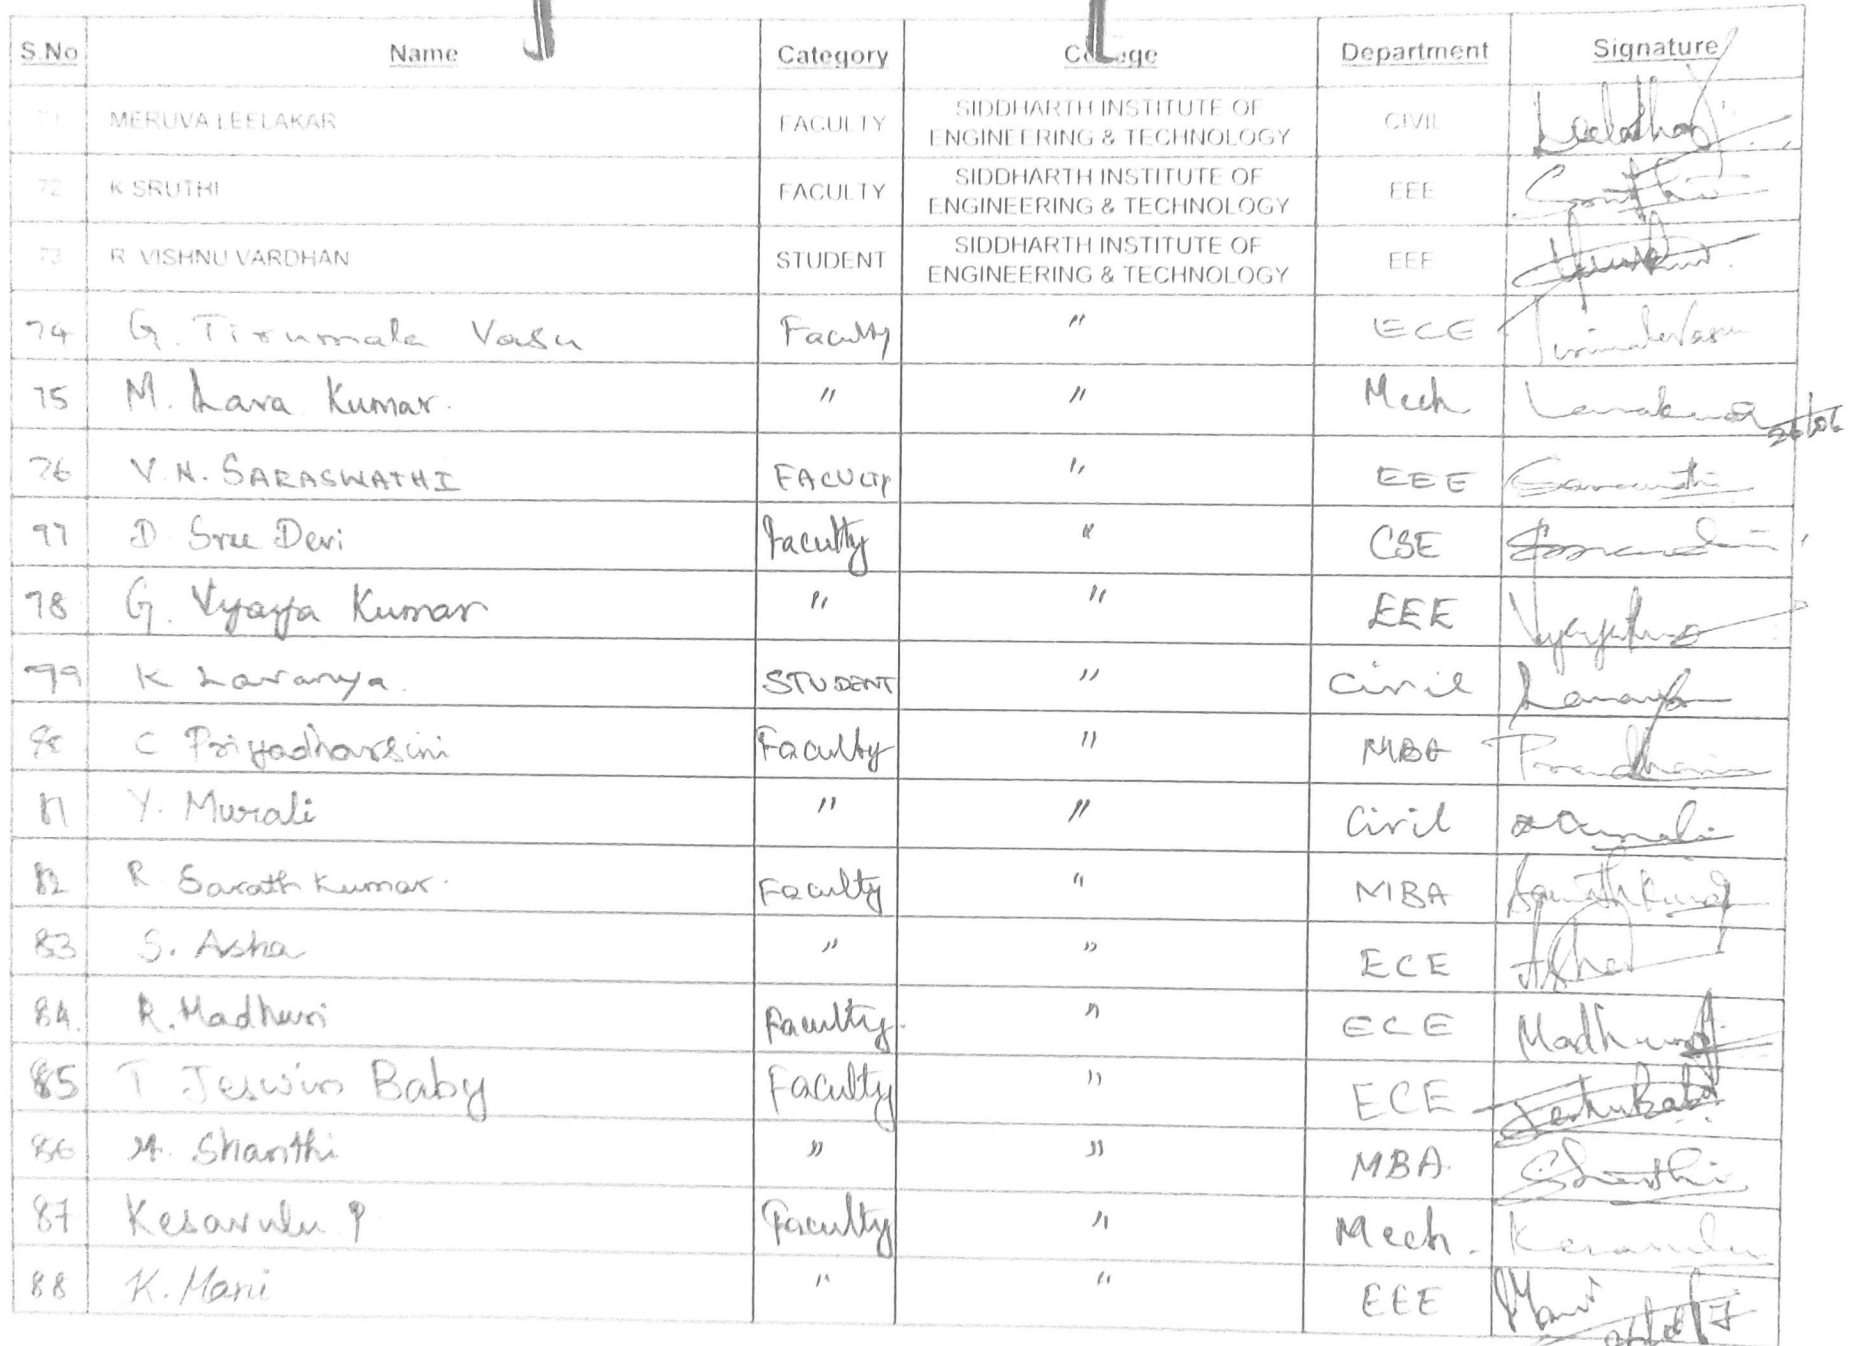 S.No Name Category College Department Signature
71 MERUVA LEELAKAR FACULTY SIDDHARTH INSTITUTE OF ENGINEERING & TECHNOLOGY CIVIL
72 K SRUTHI FACULTY SIDDHARTH INSTITUTE OF ENGINEERING & TECHNOLOGY EEE
73 R VISHNU VARDHAN STUDENT SIDDHARTH INSTITUTE OF ENGINEERING & TECHNOLOGY EEE
74 G. Tirumala Vasu Faculty " ECE TirumalaVasu
75 M. Lava Kumar. " " Mech Lavakumar 26/06
76 V.N. SARASWATHI FACULTY " EEE Saraswathi
77 D. Sree Devi Faculty " CSE
78 G. Vijaya Kumar " " EEE
79 K Lavanya. STUDENT " Civil Lavanya
80 C Priyadharsini Faculty " MBA
81 Y. Murali " " Civil
82 R Sarath Kumar. Faculty " MBA Sarath Kumar
83 S. Asha " " ECE Asha
84. R. Madhuri Faculty. " ECE Madhuri
85 T Jeswin Baby Faculty " ECE
86 M. Shanthi " " MBA. Shanthi
87 Kesavulu P Faculty " Mech. Kesavulu
88 K. Mani " " EEE Mani